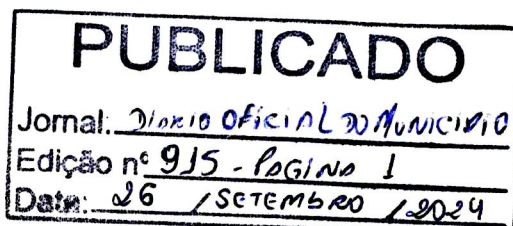 PUBLICADO
Jornal: DIARIO OFICIAL DO MUNICIPIO
Edição nº 915 - PAGINA 1
Data: 26 / SETEMBRO / 2024